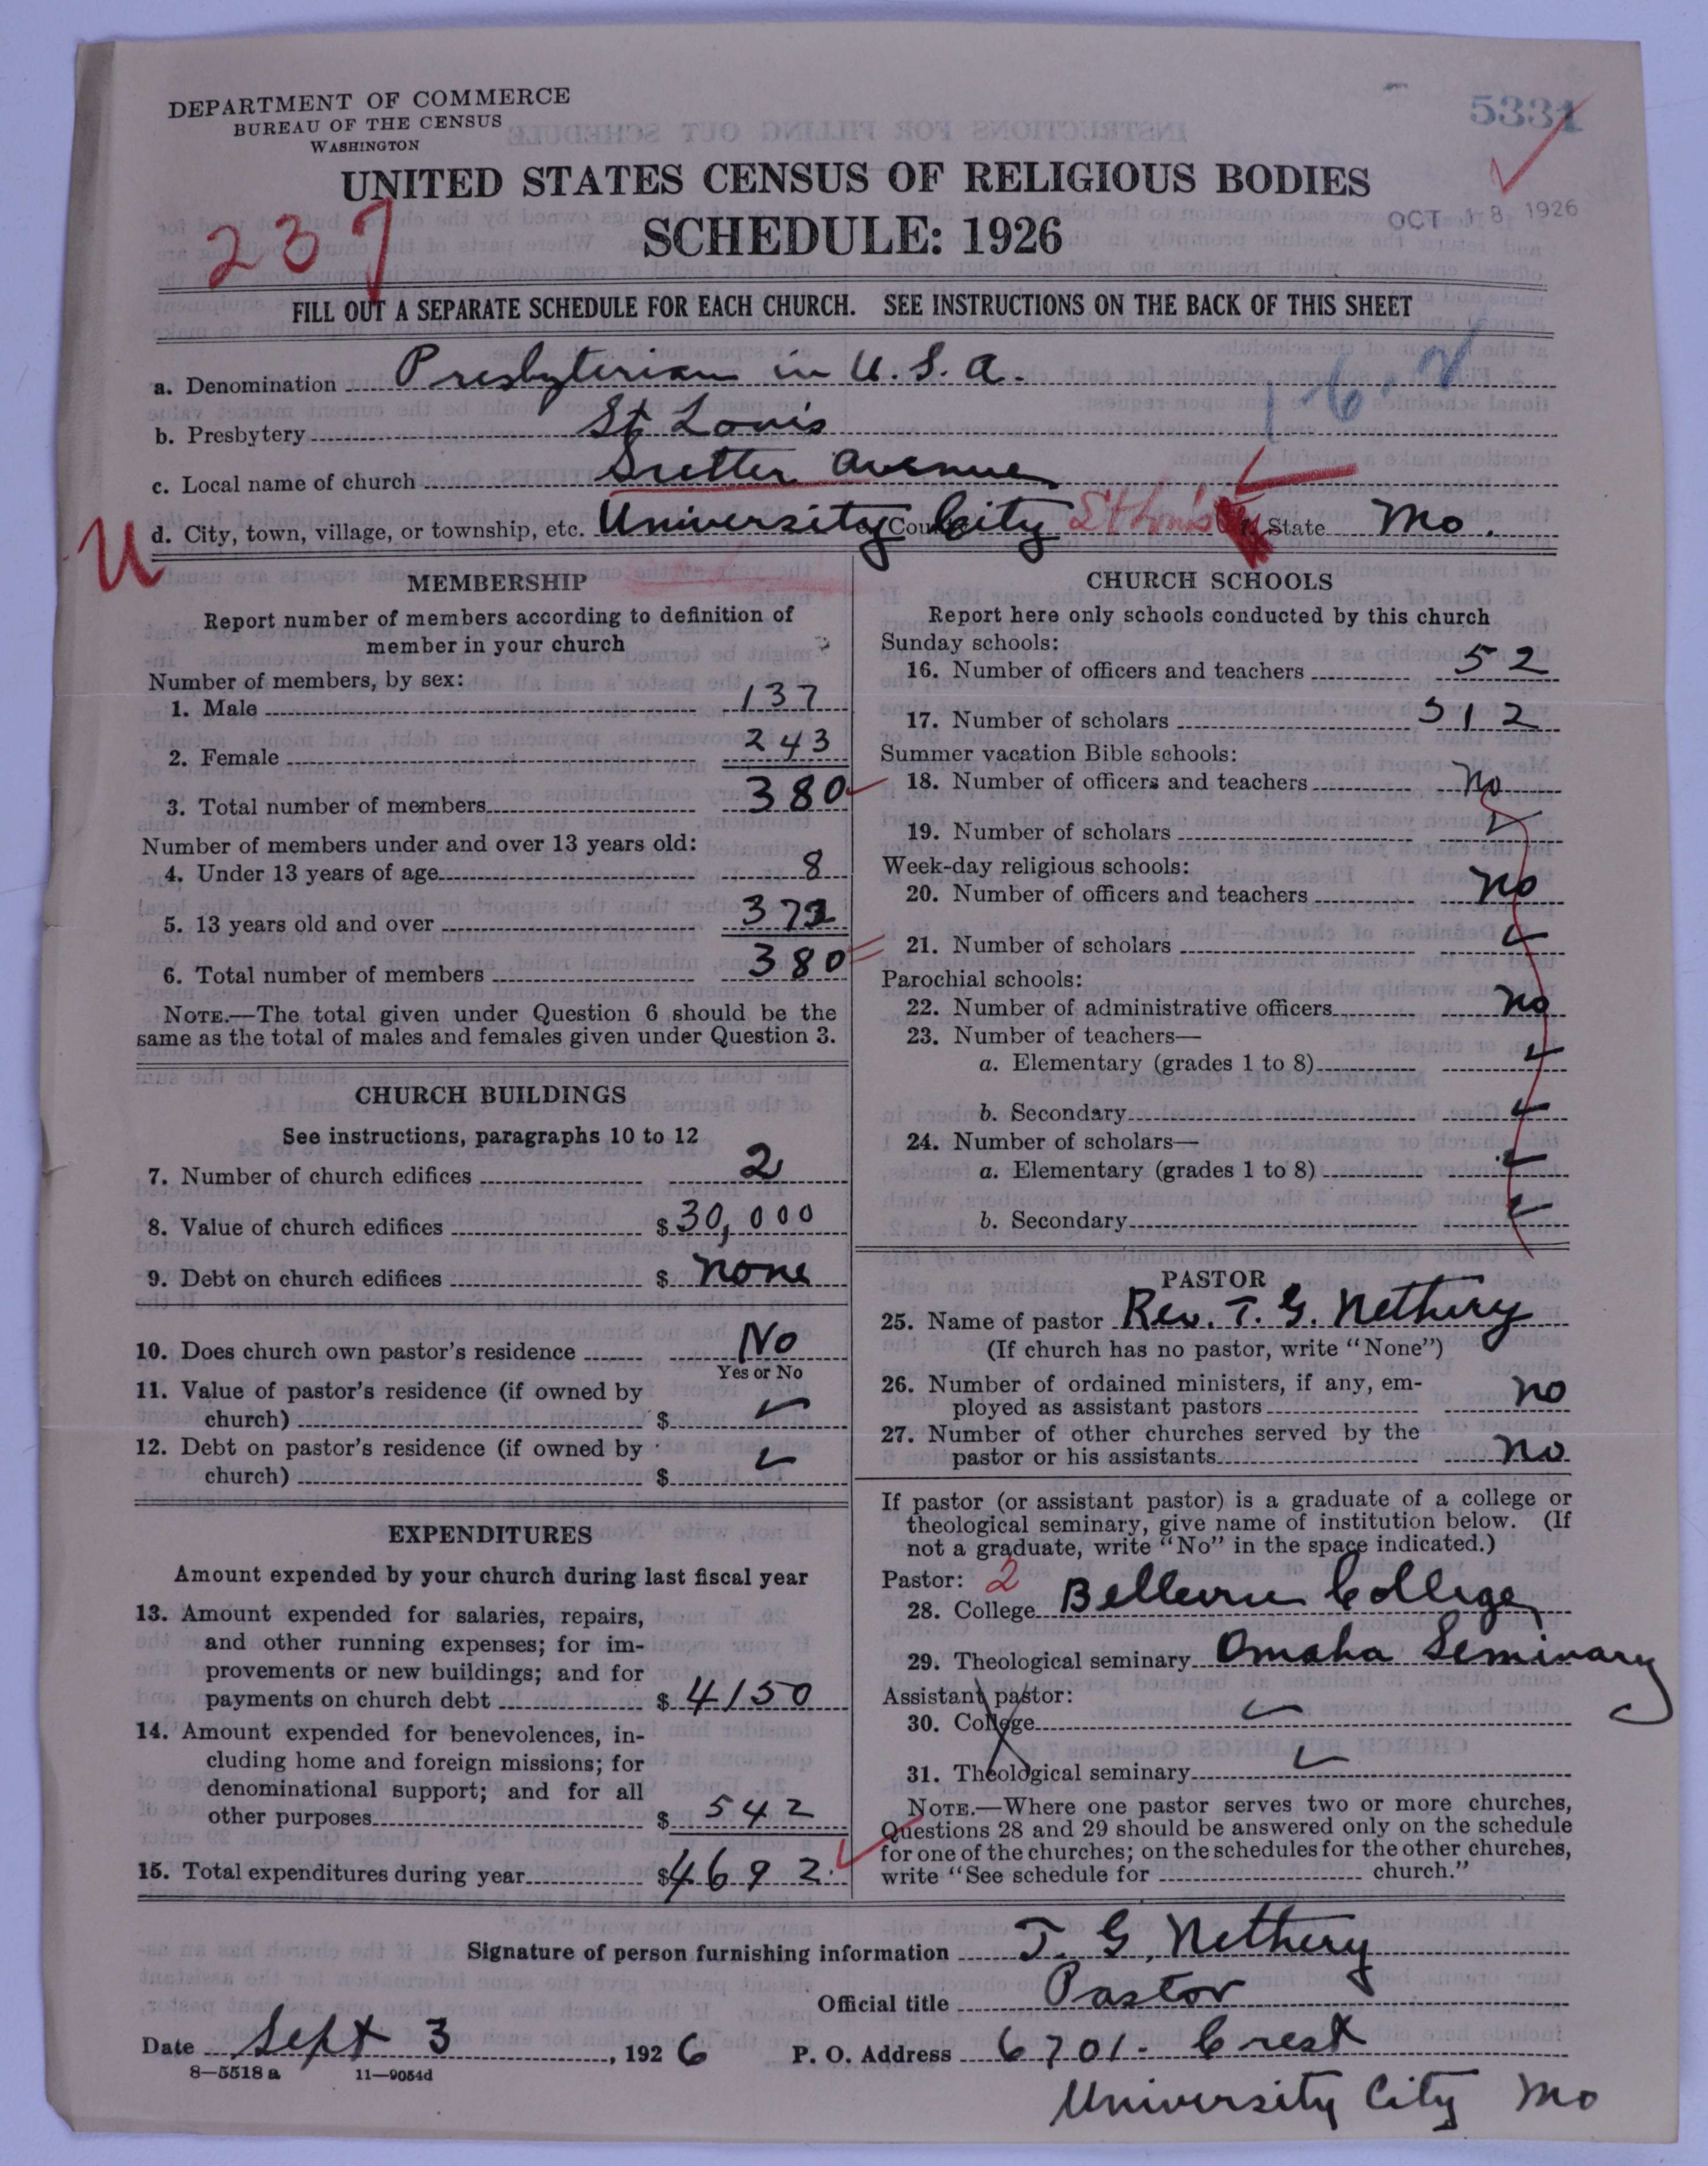 DEPARTMENT OF COMMERCE
BUREAU OF THE CENSUS
WASHINGTON
5331
UNITED STATES CENSUS OF RELIGIOUS BODIES
SCHEDULE: 1926
OCT 18 1926
237
FILL OUT A SEPARATE SCHEDULE FOR EACH CHURCH. SEE INSTRUCTIONS ON THE BACK OF THIS SHEET
a. Denomination Presbyterian in U.S.A.
b. Presbytery St Louis
c. Local name of church Sutter Avenue
U d. City, town, village, or township, etc. University City e. County St Louis f. State Mo.
MEMBERSHIP
Report number of members according to definition of
member in your church
Number of members, by sex:
1. Male 137
2. Female 243
3. Total number of members 380
Number of members under and over 13 years old:
4. Under 13 years of age 8
5. 13 years old and over 372
6. Total number of members 380
NOTE.—The total given under Question 6 should be the
same as the total of males and females given under Question 3.
CHURCH BUILDINGS
See instructions, paragraphs 10 to 12
7. Number of church edifices 2
8. Value of church edifices $ 30,000
9. Debt on church edifices $ none
10. Does church own pastor's residence No
Yes or No
11. Value of pastor's residence (if owned by
church) $
12. Debt on pastor's residence (if owned by
church) $
EXPENDITURES
Amount expended by your church during last fiscal year
13. Amount expended for salaries, repairs,
and other running expenses; for im-
provements or new buildings; and for
payments on church debt $ 4150
14. Amount expended for benevolences, in-
cluding home and foreign missions; for
denominational support; and for all
other purposes $ 542
15. Total expenditures during year $ 4692
CHURCH SCHOOLS
Report here only schools conducted by this church
Sunday schools:
16. Number of officers and teachers 52
17. Number of scholars 512
Summer vacation Bible schools:
18. Number of officers and teachers No
19. Number of scholars
Week-day religious schools:
20. Number of officers and teachers No
21. Number of scholars
Parochial schools:
22. Number of administrative officers No
23. Number of teachers—
a. Elementary (grades 1 to 8)
b. Secondary
24. Number of scholars—
a. Elementary (grades 1 to 8)
b. Secondary
PASTOR
25. Name of pastor Rev. T. G. Nethery
(If church has no pastor, write "None")
26. Number of ordained ministers, if any, em-
ployed as assistant pastors no
27. Number of other churches served by the
pastor or his assistants no
If pastor (or assistant pastor) is a graduate of a college or
theological seminary, give name of institution below. (If
not a graduate, write "No" in the space indicated.)
Pastor: 2
28. College Bellevue College
29. Theological seminary Omaha Seminary
Assistant pastor:
30. College
31. Theological seminary
NOTE.—Where one pastor serves two or more churches,
Questions 28 and 29 should be answered only on the schedule
for one of the churches; on the schedules for the other churches,
write "See schedule for church."
Signature of person furnishing information T. G. Nethery
Official title Pastor
Date Sept 3, 1926 P. O. Address 6701 - Crest
8—5518 a 11—9054d
University City Mo